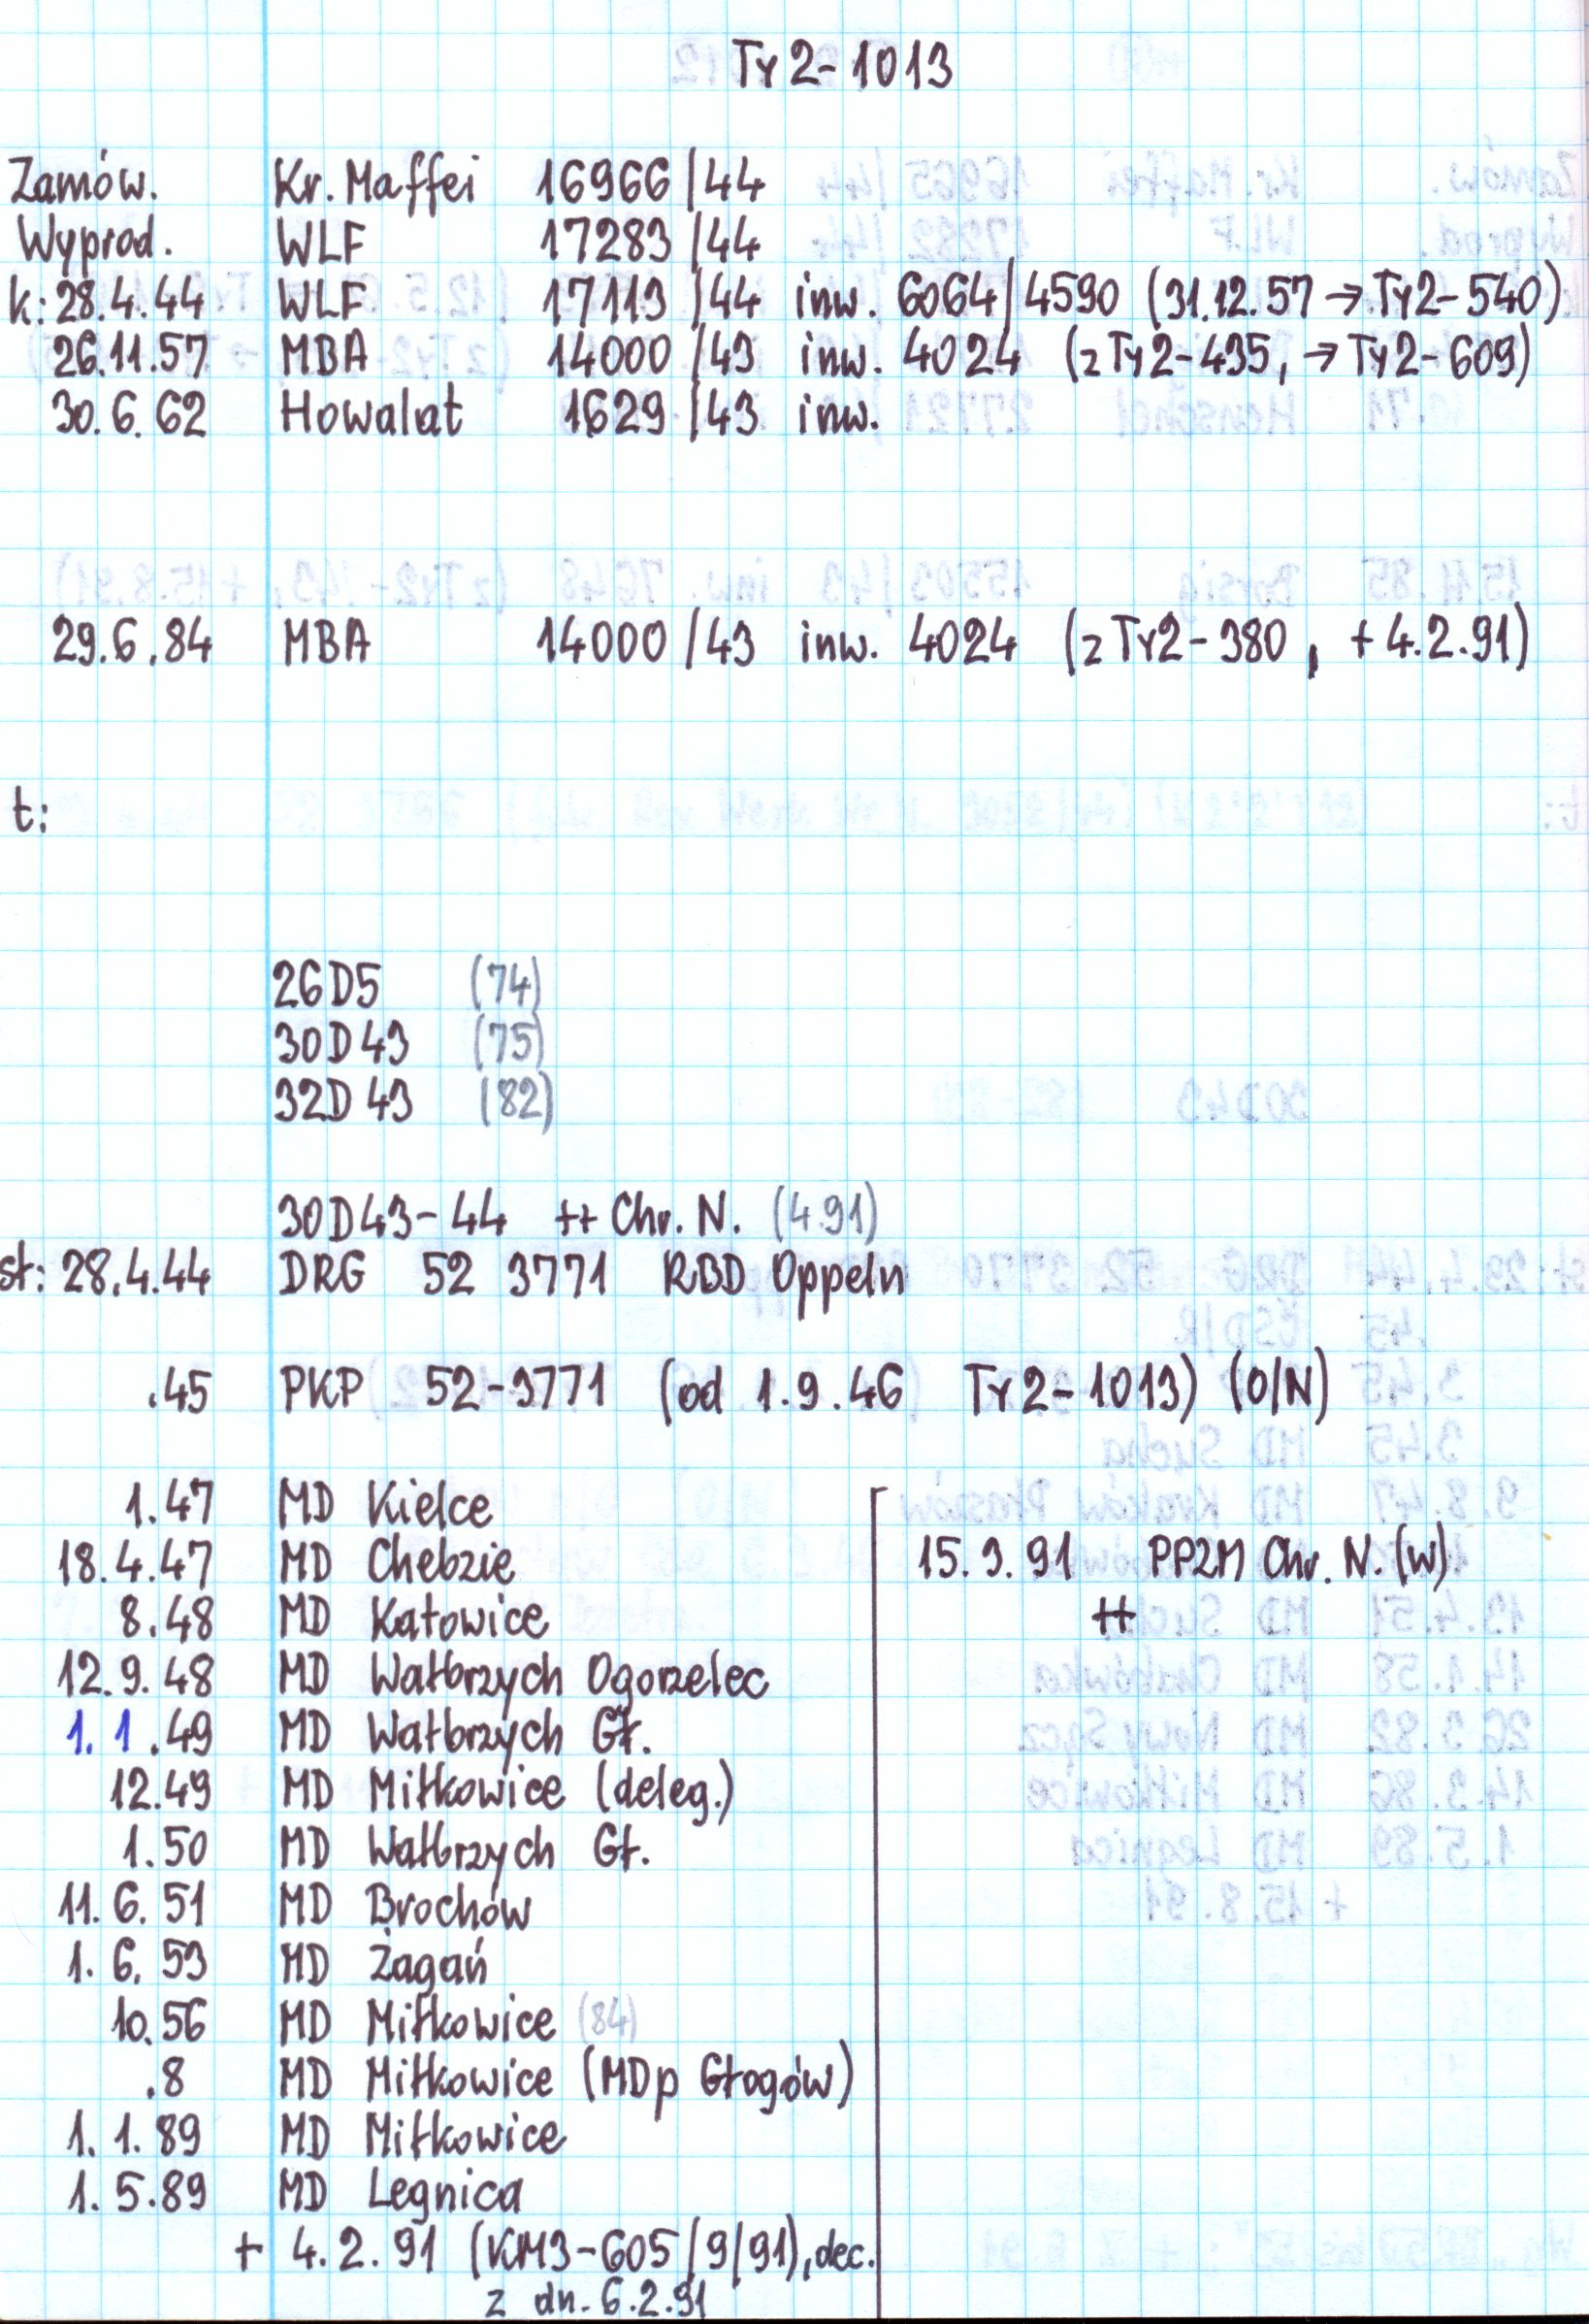 Ty2-1013
Zamów. Kr. Maffei 16966/44
Wyprod. WLF 17283/44
k: 28.4.44 WLF 17113/44 inw. 6064/4590 (31.12.57 → Ty2-540)
26.11.57 MBA 14000/43 inw. 4024 (z Ty2-435, → Ty2-609)
30.6.62 Howalat 1629/43 inw.
29.6.84 MBA 14000/43 inw. 4024 (z Ty2-380, + 4.2.91)
t:
26D5 (74)
30D43 (75)
32D43 (82)
30D43-44 ++ Chr. N. (4.91)
st: 28.4.44 DRG 52 3771 RBD Oppeln
.45 PKP 52-3771 (od 1.9.46 Ty2-1013) (O/N)
1.47 MD Kielce
18.4.47 MD Chebzie
8.48 MD Katowice
12.9.48 MD Wałbrzych Ogorzelec
1.1.49 MD Wałbrzych Gł.
12.49 MD Miłkowice (deleg.)
1.50 MD Wałbrzych Gł.
11.6.51 MD Brochów
1.6.53 MD Żagań
10.56 MD Miłkowice (84)
.8 MD Miłkowice (MDp Głogów)
1.1.89 MD Miłkowice
1.5.89 MD Legnica
+ 4.2.91 (KM3-605/9/91), dec.
z dn. 6.2.91
15.3.91 PPZM Chr. N. (W)
++